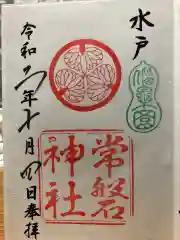 水戸
常磐
神社
令和六年七月四日奉拝